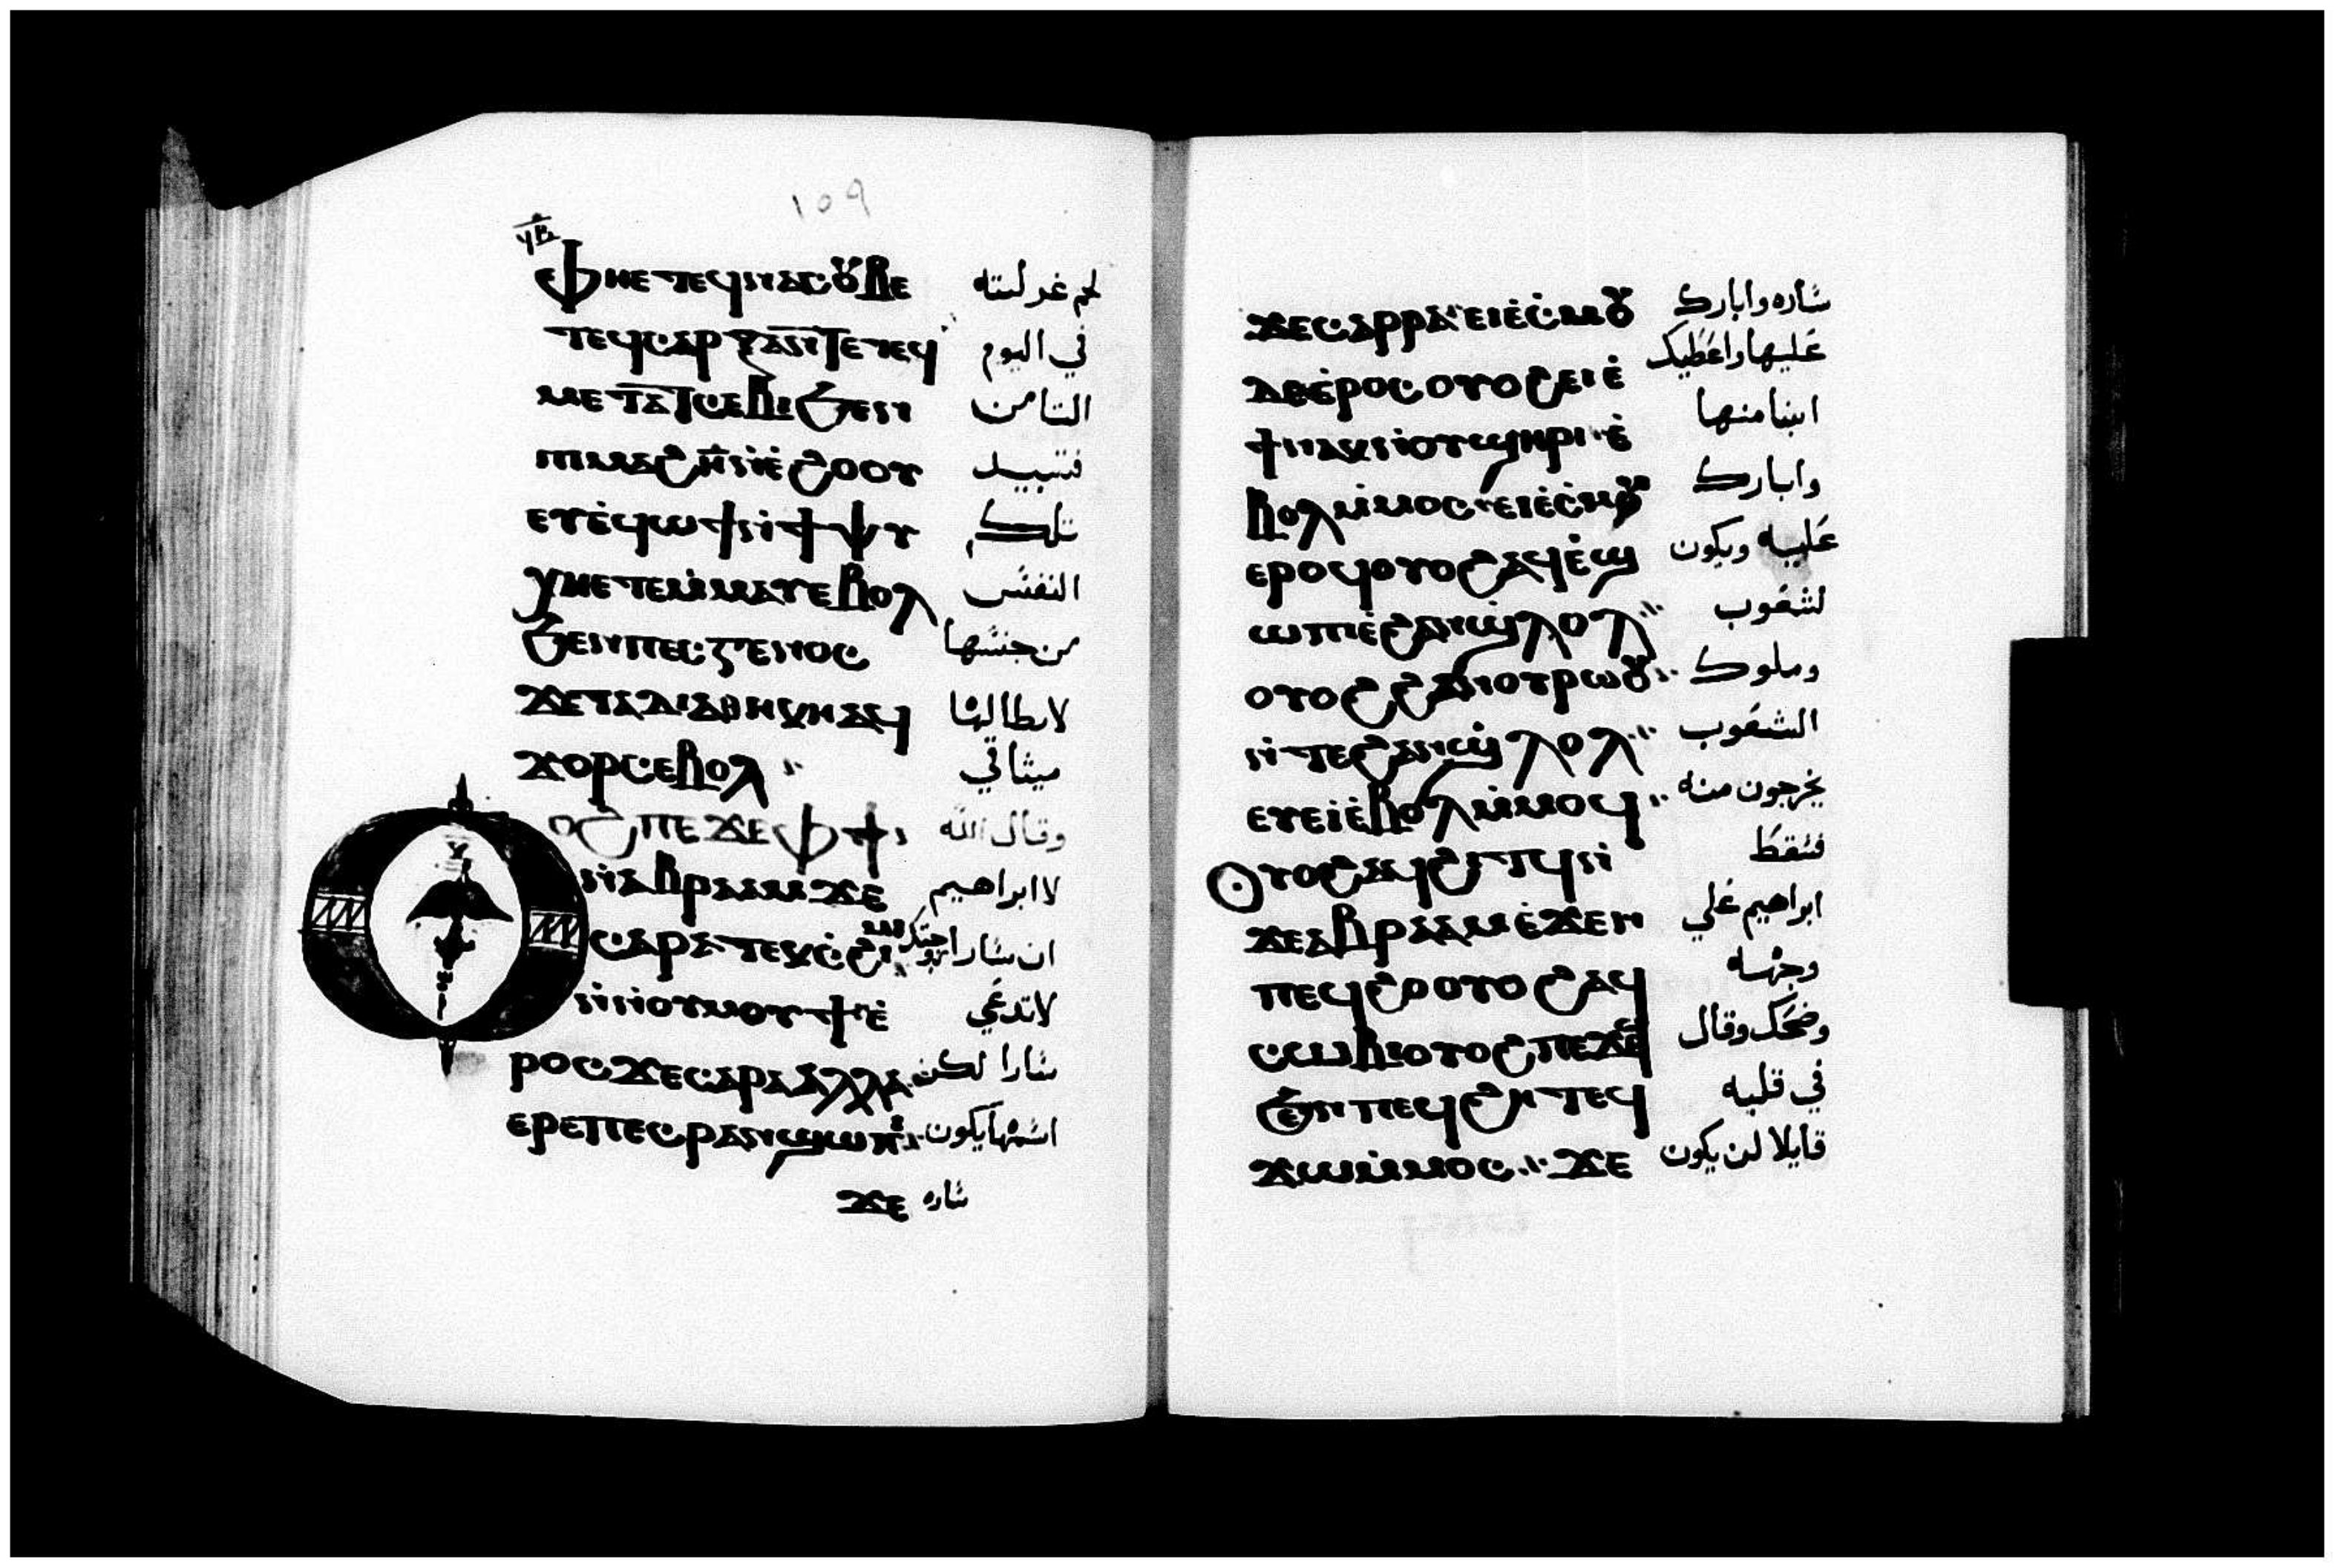 109
ⲫⲏⲉⲧⲉϥⲛⲁⲥⲟⲩⲃⲉ لحم غرلته
ⲧⲉϥⲥⲁⲣⲝ ⲁⲛ ϯⲉⲧⲉϥ في اليوم
ⲙⲉⲧⲁⲧⲥⲉⲃⲓ ϧⲉⲛ الثامن
ⲡⲓⲙⲁϩ ⲏ̅ ⲛ̀ⲉ̀ϩⲟⲟⲩ فتبيد
ⲉⲩⲉ̀ϥⲱϯ ⲛ̀ϯⲯⲩ تلك
ⲭⲏⲉⲧⲉⲙ̀ⲙⲁⲩ ⲉⲃⲟⲗ النفس
ϧⲉⲛ ⲡⲉⲥⲅⲉⲛⲟⲥ من جنسها
ϫⲉ ⲧⲁⲇⲓⲁⲑⲏⲕⲏ ⲁϥ
ϫⲟⲣⲥ ⲉⲃⲟⲗ ميثاقي
ⲟⲩⲟϩ ⲡⲉϫⲉ ⲫϯ وقال الله
ⲛ̀ⲁⲃⲣⲁⲁⲙ ϫⲉ لابراهيم
ⲥⲁⲣⲁ ⲧⲉⲕⲥ̀ϩⲓⲙⲓ ان سارا
ⲛ̀ⲛⲟⲩⲙⲟⲩϯ ⲉ̀ لا تدعي
ⲣⲟⲥ ϫⲉ ⲥⲁⲣⲁ ⲁⲗⲗⲁ سارا لكن
ⲉⲣⲉ ⲡⲉⲥⲣⲁⲛ ϣⲱⲡⲓ اسمها يكون
ϫⲉ ساره
ϫⲉ ⲥⲁⲣⲣⲁ ⲉⲓⲉ̀ⲥ̀ⲙⲟⲩ ساره وابارك
ⲇⲉ ⲉ̀ⲣⲟⲥ ⲟⲩⲟϩ ⲉⲓⲉ̀ عليها واعطيك
ϯ ⲛⲁⲕ ⲛ̀ⲟⲩϣⲏⲣⲓ ⲉ̀ ابنا منها
ⲃⲟⲗ ⲙ̀ⲙⲟⲥ ⲉⲓⲉ̀ⲥ̀ⲙⲟⲩ وابارك
ⲉⲣⲟϥ ⲟⲩⲟϩ ⲁϥⲉ̀ϣ عليه ويكون
ⲱⲡⲓ ⲉ̀ϩⲁⲛϣⲗⲟⲗ لشعوب
ⲟⲩⲟϩ ϩⲁⲛⲟⲩⲣⲱⲟⲩ وملوك
ⲛ̀ⲧⲉ ϩⲁⲛϣⲗⲟⲗ الشعوب
ⲉⲩⲉⲓ̀ ⲉ̀ⲃⲟⲗ ⲙ̀ⲙⲟϥ يخرجون منه
ⲟⲩⲟϩ ⲁϥϩⲓⲧϥ ⲛ̀ فسقط
ϫⲉ ⲁⲃⲣⲁⲁⲙ ⲉ̀ϫⲉⲛ ابراهيم علي
ⲡⲉϥϩⲟ ⲟⲩⲟϩ ⲁϥ وجهه
ⲥⲱⲃⲓ ⲟⲩⲟϩ ⲡⲉϫⲉ وضحك وقال
ϧⲉⲛ ⲡⲉϥϩⲏⲧ ⲉϥ في قلبه
ϫⲱ ⲙ̀ⲙⲟⲥ ϫⲉ قايلا لن يكون